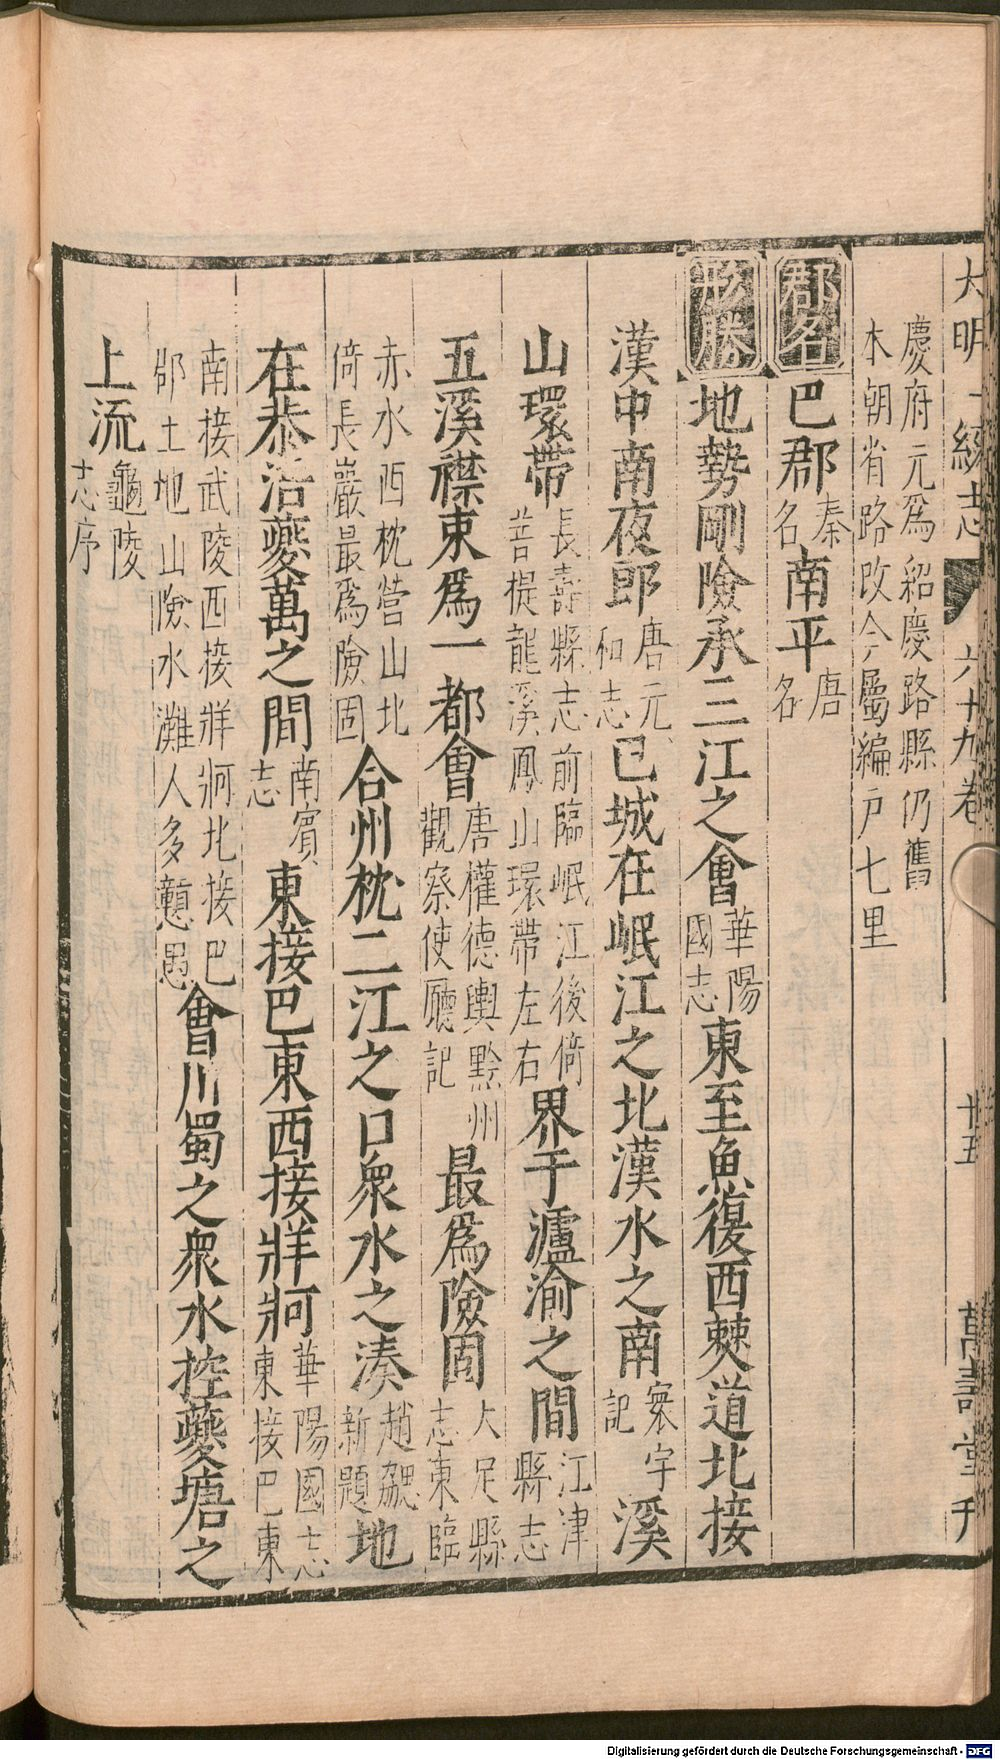 大明一統志 六十九卷 廿五 萬壽堂刊
慶府元爲紹慶路縣仍舊
本朝省路改今屬編戶七里
郡名 巴郡 秦名 南平 唐名
形勝 地勢剛險承三江之會 華陽國志 東至魚復西僰道北接
漢中南夜郎 唐元和志 巴城在岷江之北漢水之南 寰宇記 溪
山環帶 長壽縣志前臨岷江後倚菩提龍溪鳳山環帶左右 界于瀘渝之間 江津縣志
五溪襟束爲一都會 唐權德輿黔州觀察使廳記 最爲險固 大足縣志東臨
赤水西枕營山北倚長巖最爲險固 合州枕二江之口衆水之湊 趙勰新題 地
在恭涪夔萬之間 南賓志 東接巴東西接牂牁 華陽國志東接巴東
南接武陵西接牂牁北接巴郡土地山險水灘人多戇愚 會川蜀之衆水控夔塘之
上流 龜陵志序
Digitalisierung gefördert durch die Deutsche Forschungsgemeinschaft - DFG